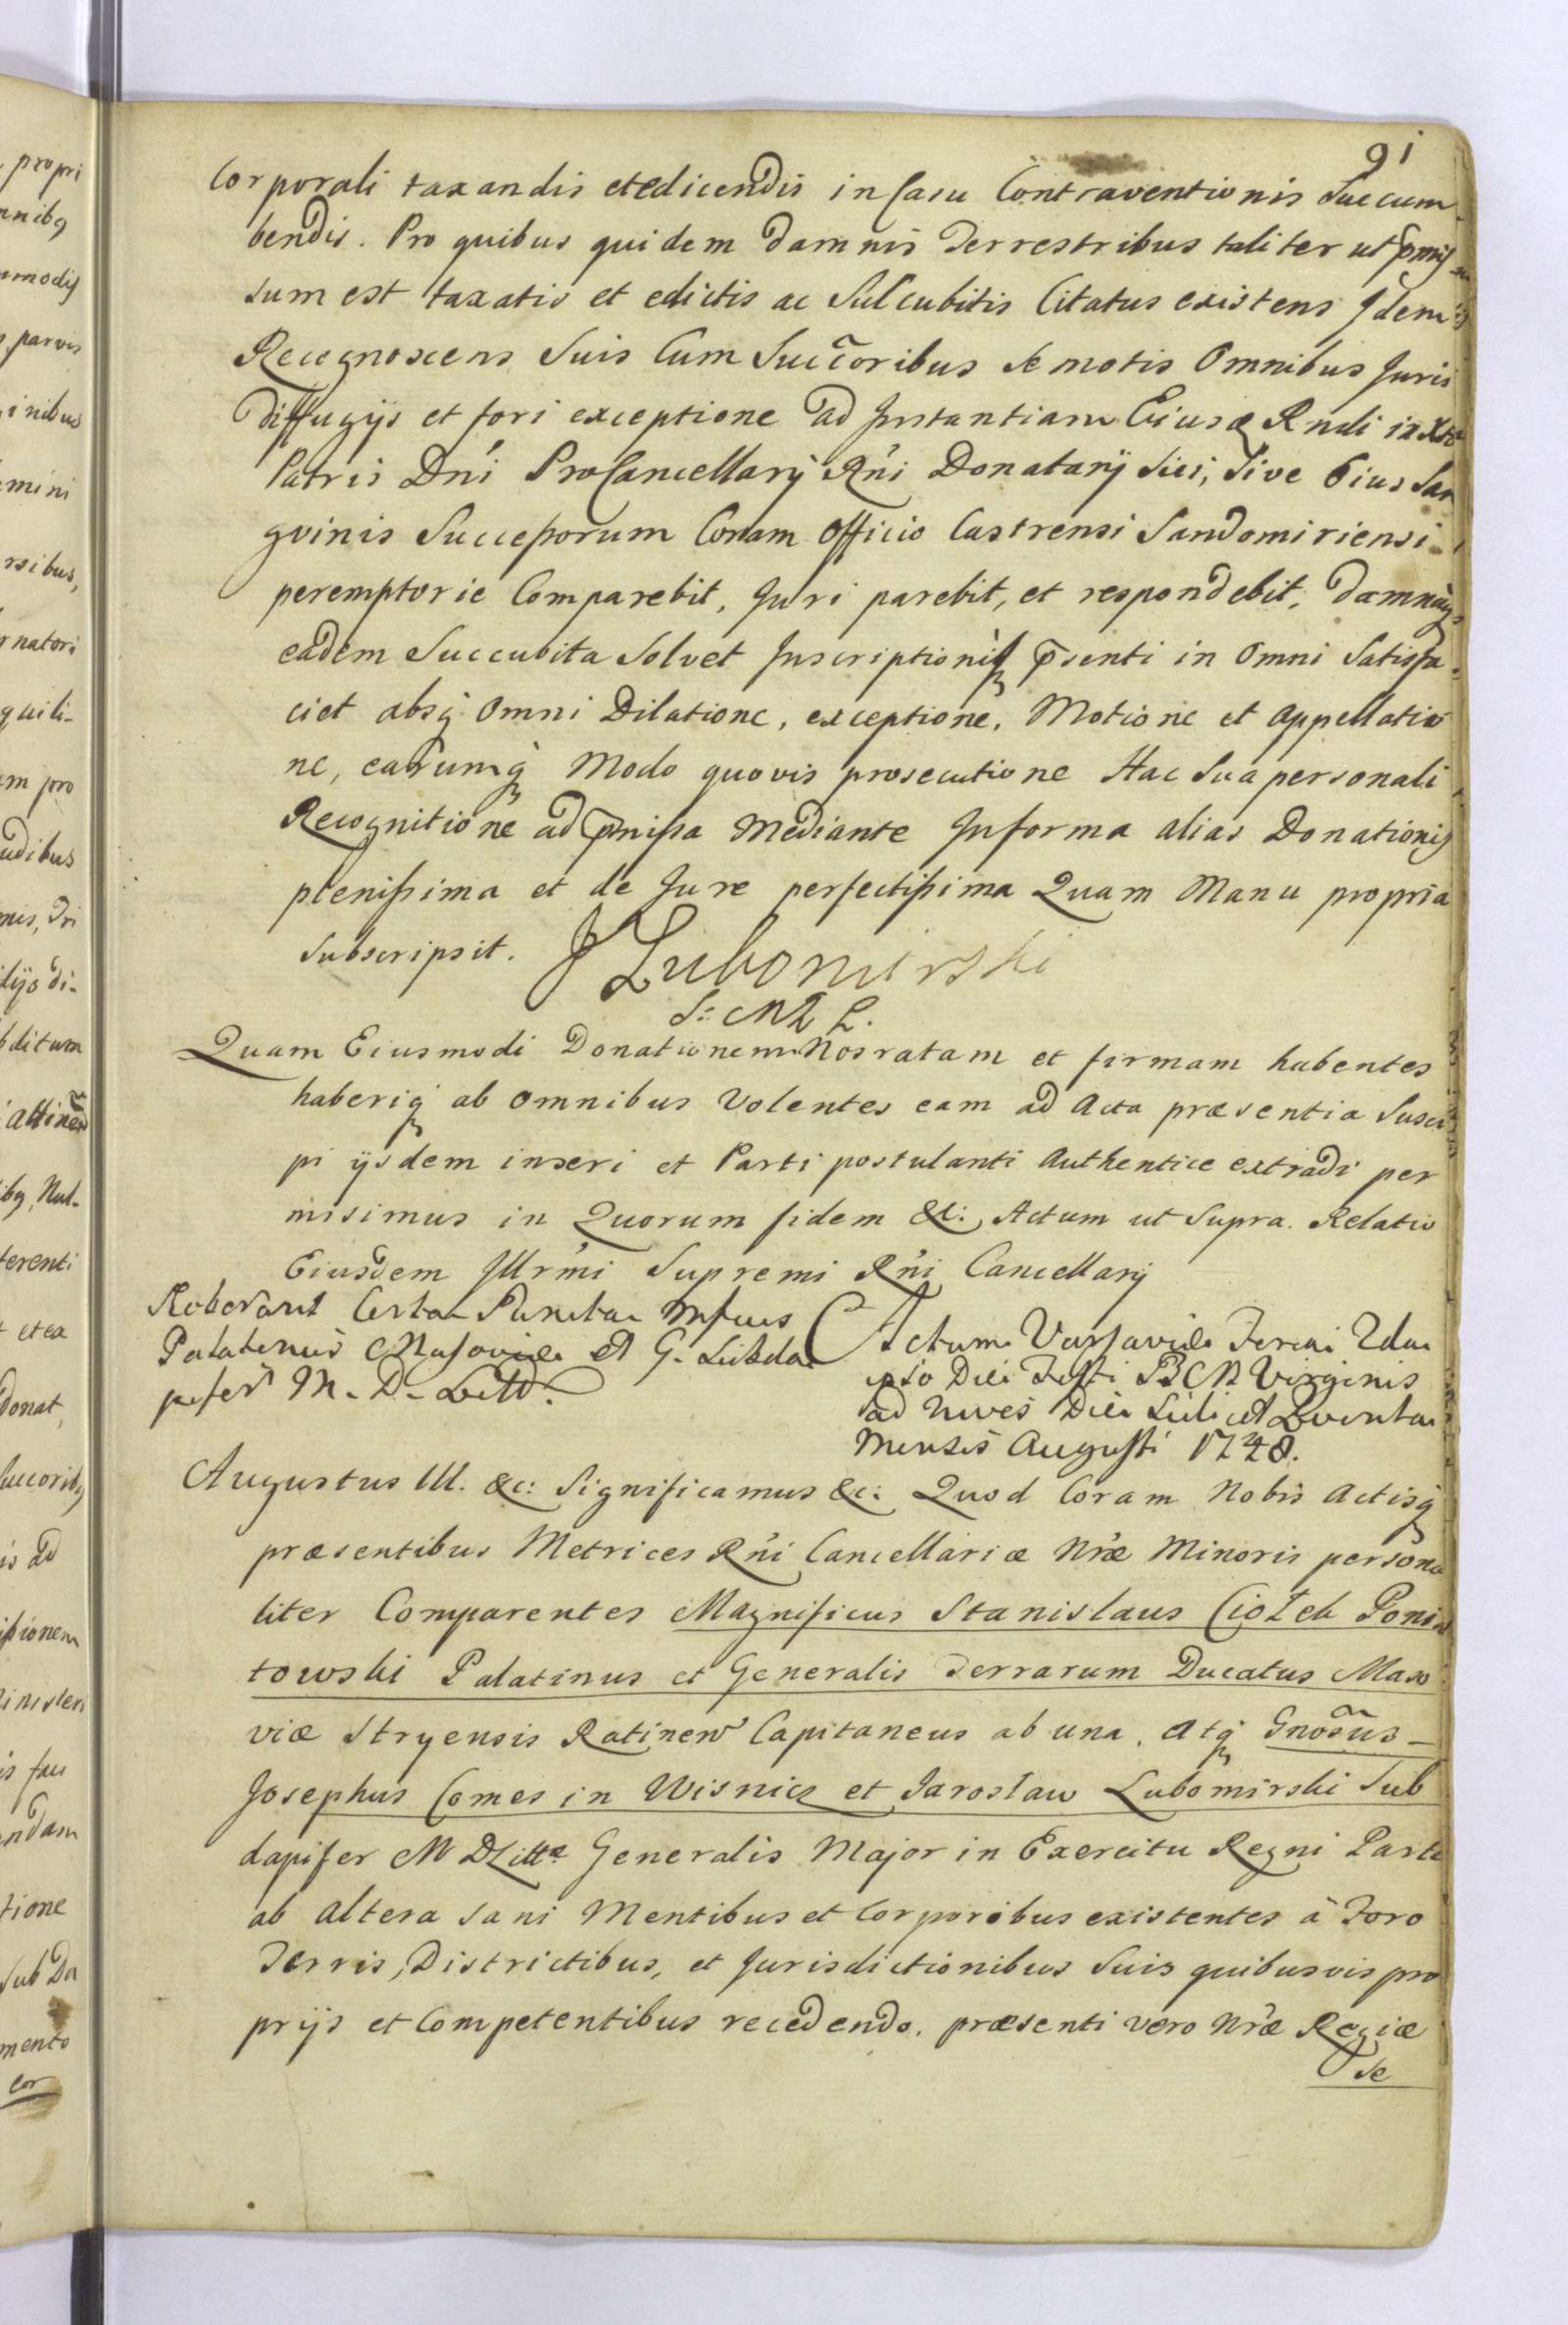 91
Corporali taxandis et edicendis in Casu Contraventionis Succum
bendis. Pro quibus quidem damnis Terrestribus taliter ut pmis
sum est taxatis et edictis ac Succubitis Citatus existens Idem
Recognoscens Suis Cum Succ̃oribus Semotis Omnibus Juris
diffugijs et fori exceptione ad Instantiam Eiusd Rndi in Xto
Patris Dni ProCancellarij Rni Donatarij Sui, Sive Eius San
gvinis Successorum Coram Officio Castrensi Sandomiriensi
peremptorie Comparebit, Juri parebit, et respondebit, damnaq
eadem Succubita Solvet Inscriptioniq p̃senti in Omni Satisfa
ciet absq Omni Dilatione, exceptione, Motione et appellatio
ne, earumq Modo quovis prosecutione Hac Sua personali
Recognitione ad pmissa Mediante In forma alias Donationis
plenissima et de Jure perfectissima Quam Manu propria
Subscripsit. J Lubomirski
S: M D L.
Quam Eiusmodi Donationem Nos ratam et firmam habentes
haberiq ab omnibus Volentes eam ad Acta præsentia Susci
pi ijsdem inseri et Parti postulanti Authentice extradi per
misimus in Quorum fidem &c: Actum ut Supra. Relatio
Eiusdem Illrmi Supremi Rni Cancellarij
Roborant Certa Puncta Mfcus
Palatinus Masoviæ et G. Subda
pifer M. D. Litt.
Actum Varsaviæ Feria 2da
ipso Die Festi B M Virginis
ad Nives Die Scilicet Quinta
Mensis Augusti 1748.
Augustus III. &c: Significamus &c: Quod Coram Nobis Actisq
præsentibus Metrices Rni Cancellariæ Nræ Minoris persona
liter Comparentes Magnificus Stanislaus Ciołek Ponia
towski Palatinus et Generalis Terrarum Ducatus Maso
viæ Stryensis Ratinen Capitaneus ab una, Atq Gnosus
Josephus Comes in Wisnicz et Jarosław Lubomirski Sub
dapifer M D Litt Generalis Major in Exercitu Regni Parte
ab altera sani Mentibus et Corporibus existentes à Foro
Terris, Districtibus, et Jurisdictionibus Suis quibusvis pro
prijs et Competentibus recedendo, præsenti vero Nræ Regiæ
Se